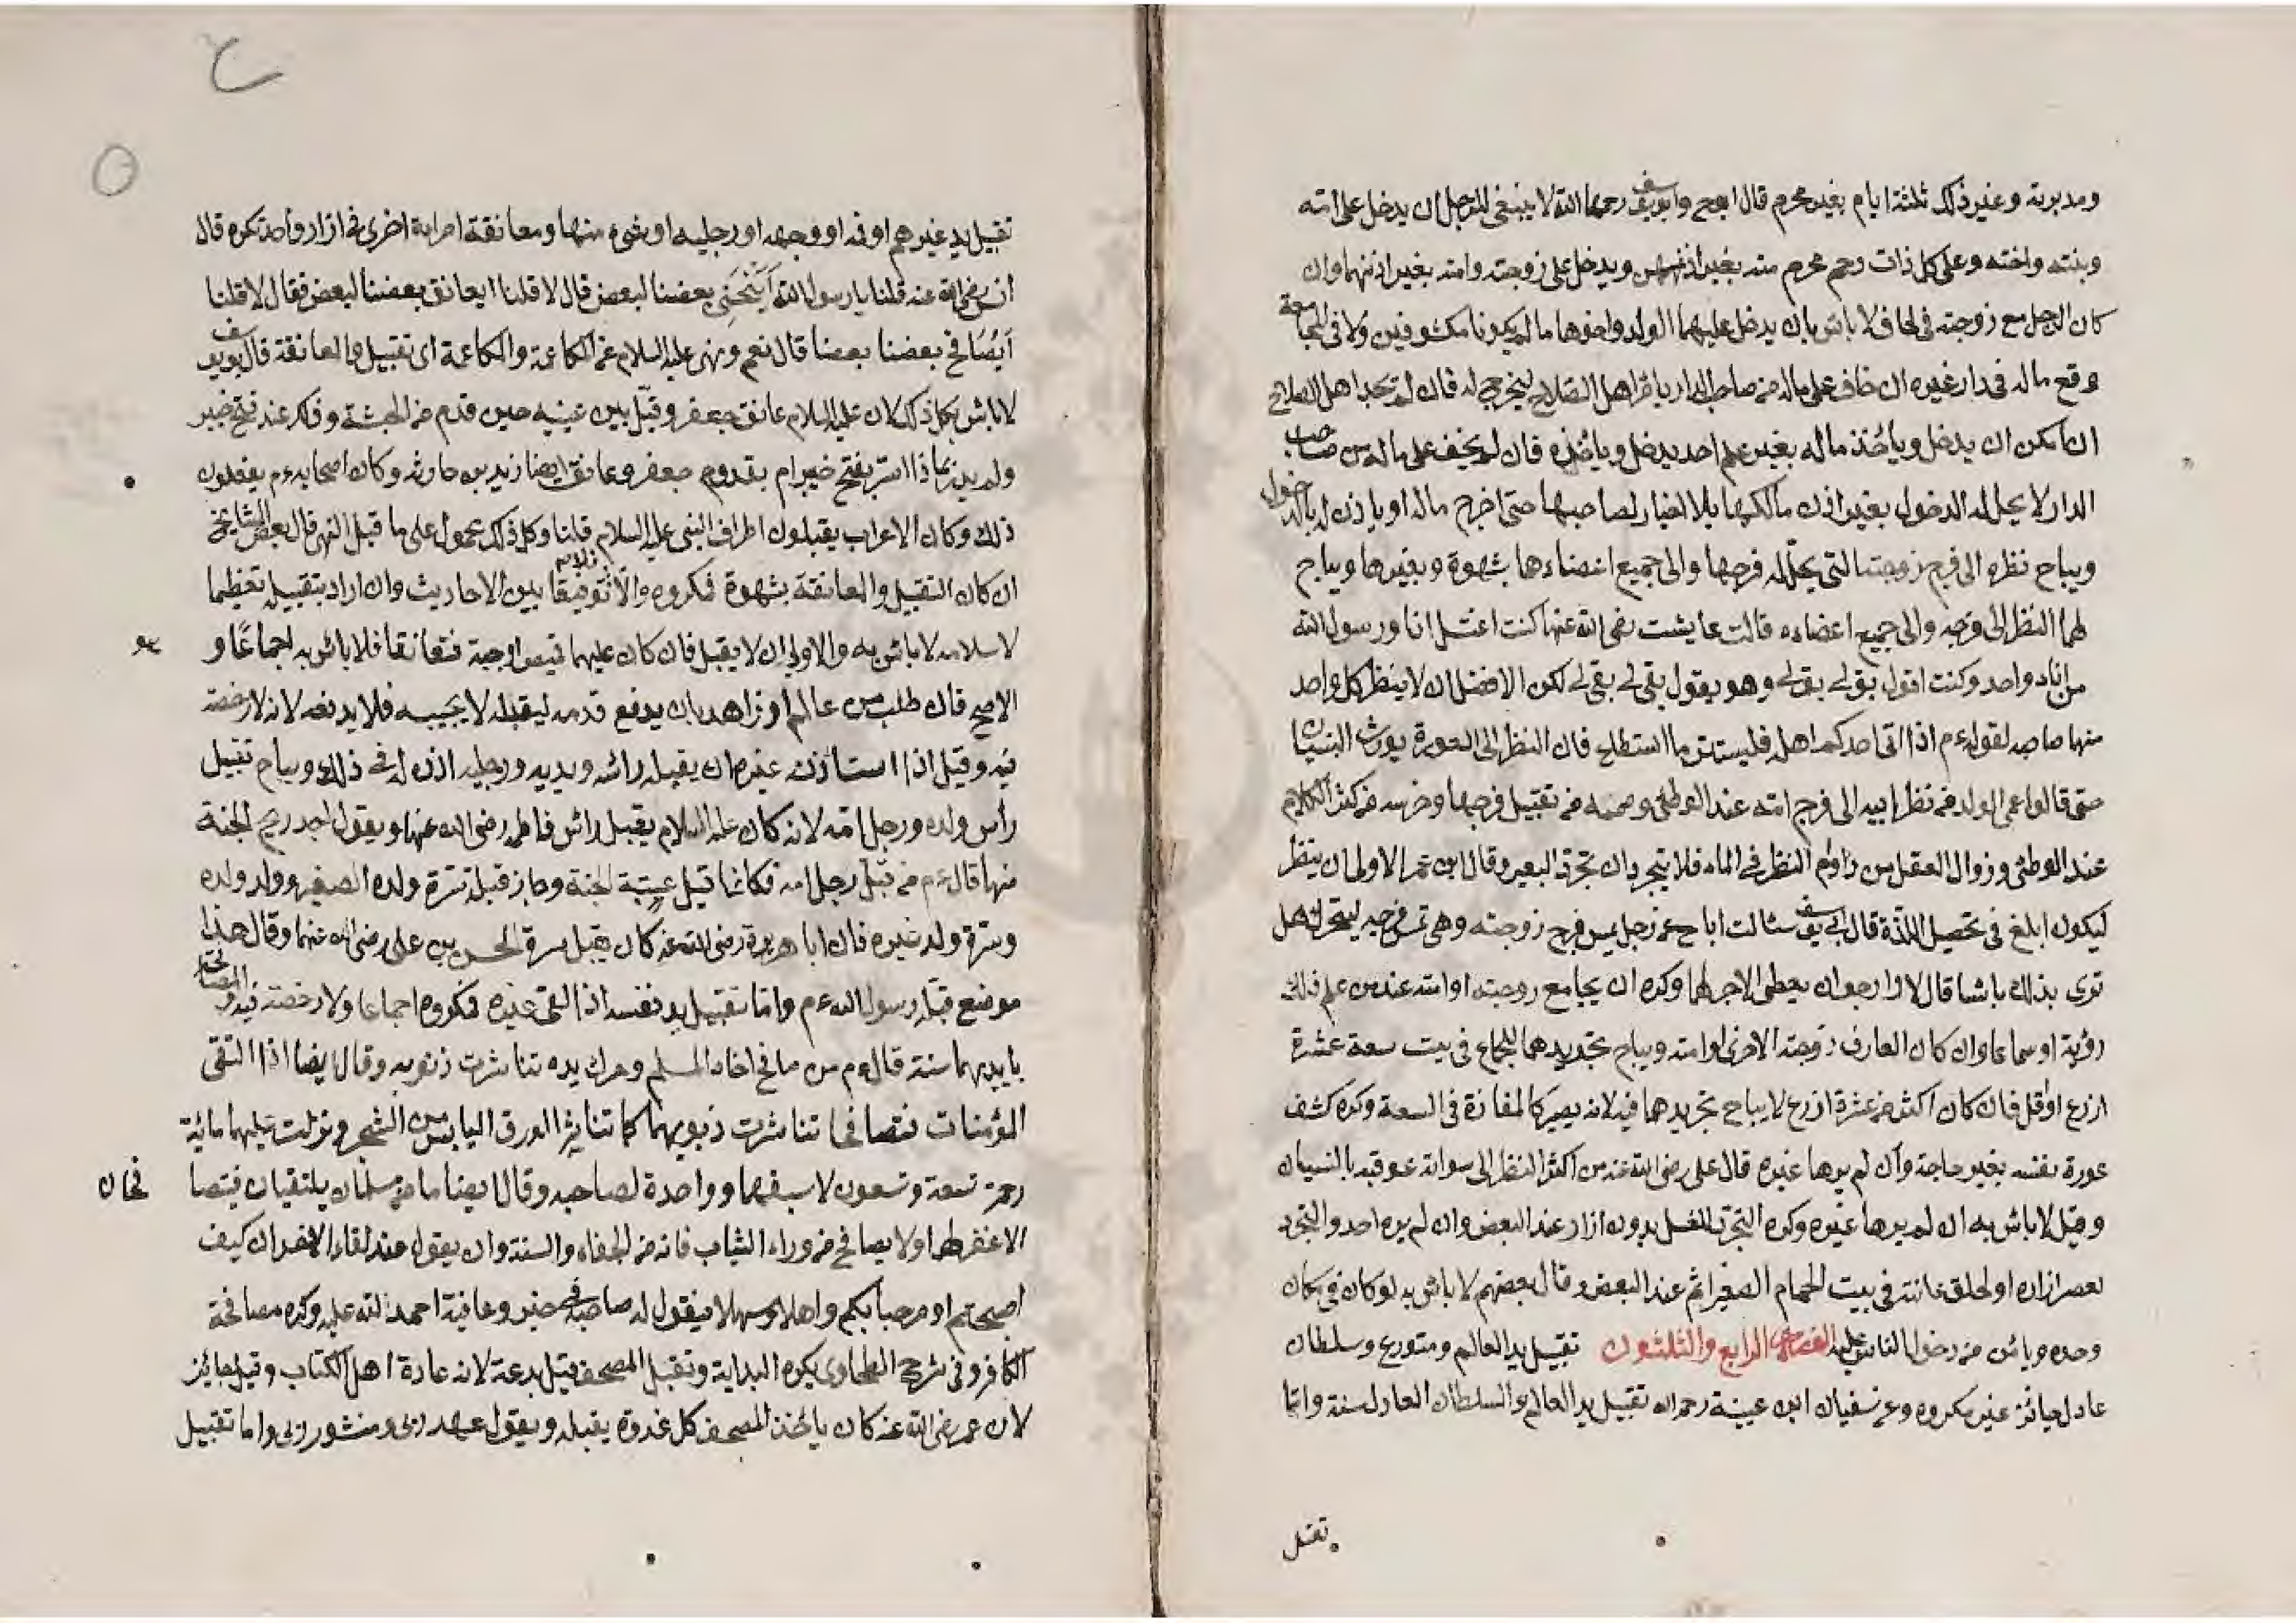 ومدبرته وغير ذلك ثلثة ايام بغير محرم قال ابوح وابويوسف رحمهما الله لا ينبغى للرجل ان يدخل على امته
وبنته واخته وعلى كل ذات رحم محرم منه بغير اذنهن ويدخل على زوجته وامته بغير اذنهما وان
كان الرجل مع زوجته فى لحاف لا باس بان يدخل عليهما الولد واخوها ما لم يكونا مكشوفين ولا فى المجامعة
وقع ماله فى دار غيره ان خاف على ماله من صاحب الدار يا اهل الصلاح ليخرجه له فان لم يجد اهل الصلاح
ان امكن ان يدخل وياخذ ماله بغير علم احد يدخل وياخذه فان لم يخف على ماله من صاحب
الدار لا يحل له الدخول بغير اذن مالكها بلا اخبار لصاحبها حتى اخرج ماله او ياذن له بالدخول
ويباح نظره الى فرج زوجته التى يحل له فرجها والى جميع اعضاءها بشهوة وبغيرها ويباح
لهما النظر الى فرجه والى جميع اعضاءه قالت عايشت رضى الله عنها كنت اغتسل انا ورسول الله
من اناء واحد وكنت اقول بق لى بق لى وهو يقول بقى لى بقى لى لكن الافضل ان لا ينظر كل واحد
منها صاحبه لقوله ءم اذا اتى احدكم اهله فليستتر ما استطاع فان النظر الى العورة يورث النسيان
حتى قالوا عمى الولد من نظر ابيه الى فرج امته عند الوطئ وصممه من تقبيل فرجها وخرسه من كثر الكلام
عند الوطئ وزوال العقل من داوم النظر فى الماء فلا يتجردان تجرد البعير وقال ابن عمر الاولى ان ينظر
ليكون ابلغ فى تحصيل اللذة قال ابى يوسف سئالت اباح عن رجل يمس فرج زوجته وهى تمس فرجه ليتحرك هل
ترى بذلك باسا قال لا وارجو ان يعطى الاجر لهما وكره ان يجامع زوجته او امته عند من علم ذلك
رؤية او سماعا وان كان العارف زوجته الاخرى او امته ويباح تجريدهما للجماع فى بيت سعة عشرة
ازرع او قل فان كان اكثر من عشرة ازرع لا يباح تجريدهما فيه لانه يصير كالمفازة فى السعة وكره كشف
عورة نفسه بغير حاجة وان لم يرها غيره قال على رضى الله عنه من اكثر النظر الى سواته عوقب بالنسيان
وقيل لا باس به ان لم يرها غيره وكره التجرد للغسل بدون ازار عند البعض وان لم يره احد والتجرد
لعصر ازاره او لحلق عانته فى بيت الحمام الصغير اثم عند البعض وقال بعضهم لا باس به لو كان فى مكان
وحده ويائس من دخول الناس عليه الفصل الرابع والثلثون تقبيل يد العالم ومتورع وسلطان
عادل جائز غير مكروه وعن سفيان ابن عيينة رحمه الله تقبيل يد العالم والسلطان العادل سنة واما
تقبيل
تقبيل يد غيرهم او فه او وجهه او رجليه او شيء منها ومعانقة امراة اخرى فى ازار واحد تكره قال
انس رضى الله عنه قلنا يا رسول الله اينحنى بعضنا لبعض قال لا قلنا ايعانق بعضنا لبعض فقال لا قلنا
ايصافح بعضنا بعضا قال نعم ونهى عليه السلام عن المكاعمة والمكاعمة اى تقبيل والمعانقة قال ابويوسف
لا باس بكل ذلك لان عليه السلام عانق جعفر وقبل بين عينيه حين قدم من الحبشة وذلك عند فتح خيبر
ولم يدر بماذا استر بفتح خيبر ام بقدوم جعفر وعانق ايضا زيد بن حارثه وكان اصحابه ءم يفعلون
ذلك وكان الاعراب يقبلون اطراف النبى عليه السلام قلنا وكل ذلك محمول على ما قبل النهى قال بعض المشايخ
ان كان التقبيل والمعانقة بشهوة فمكروه والا فلا توفيقا بين الاحاديث وان اراد بتقبيله تعظيما
لاسلامه لا باس به والاولى ان لا يقبل فان كان عليهما قميص او جبة فتعانقا فلا باس به اجماعا و
الاصح فان طلب من عالم او زاهد بان يدفع قدمه ليقبله لا يجيبه فلا يدفعه لانه لا رخصة
فيه وقيل اذا استاذن غيره ان يقبله رائسه ويديه ورجليه اذن له فى ذلك ويباح تقبيل
رأس ولده ورجل امه لانه كان عليه السلام يقبل رائس فاطمه رضى الله عنها ويقول اجد ريح الجنة
منها قال ءم من قبل رجل امه فكانما قبل عتبة الجنة وجاز قبلة سرة ولده الصغير وولد ولده
وسرة ولد غيره فان ابا هريرة رضى الله عنه كان يقبل سرة الحسن بن على رضى الله عنهما وقال هذا
موضع قبله رسول الله ءم واما تقبيل يد نفسه اذا لقى غيره فمكروه اجماعا ولا رخصة فيه والمصافحة
بايديهما سنة قال ءم من صافح اخاه المسلم وحرك يده تناثرت ذنوبه وقال ايضا اذا التقى
المؤمنات فتصافحا تناثرت ذنوبهما كما تناثر الورق اليابس من الشجر ونزلت عليهما مائية
رحمة تسعة وتسعون لاسبقهما وواحدة لصاحبه وقال ايضا ما من مسلمان يلتقيان فيتصا
فحان
الا غفر لهما ولا يصافح من وراء الثياب فانه من الجفاء والسنة وان يقول عند لقاء الاخوان كيف
اصبحتم او مرحبا بكم واهلا وسهلا فيقول له صاحبه فى خير وعافية احمد الله عليه وكره مصافحة
الكافر وفى شرح الطحاوى يكره البداية وتقبيل المصحف قيل بدعة لانه عادة اهل الكتاب وقيل جائز
لان عمر رضى الله عنه كان ياخذ المصحف كل غدوة يقبله ويقول عهد ربى ومنشور ربى واما تقبيل